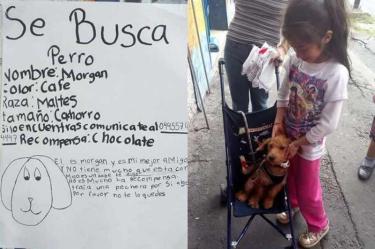 Se Busca
Perro
Nombre: Morgan
Color: Cafe
Raza: Maltes
tamaño: Cachorro
Si lo encuentras comunicate al
Recompensa: Chocolate
El es morgan y es mi mejor amigo
No tiene mucho que esta con
no es mucho la recompensa
traia una pechera por si
Por favor no te lo quedes